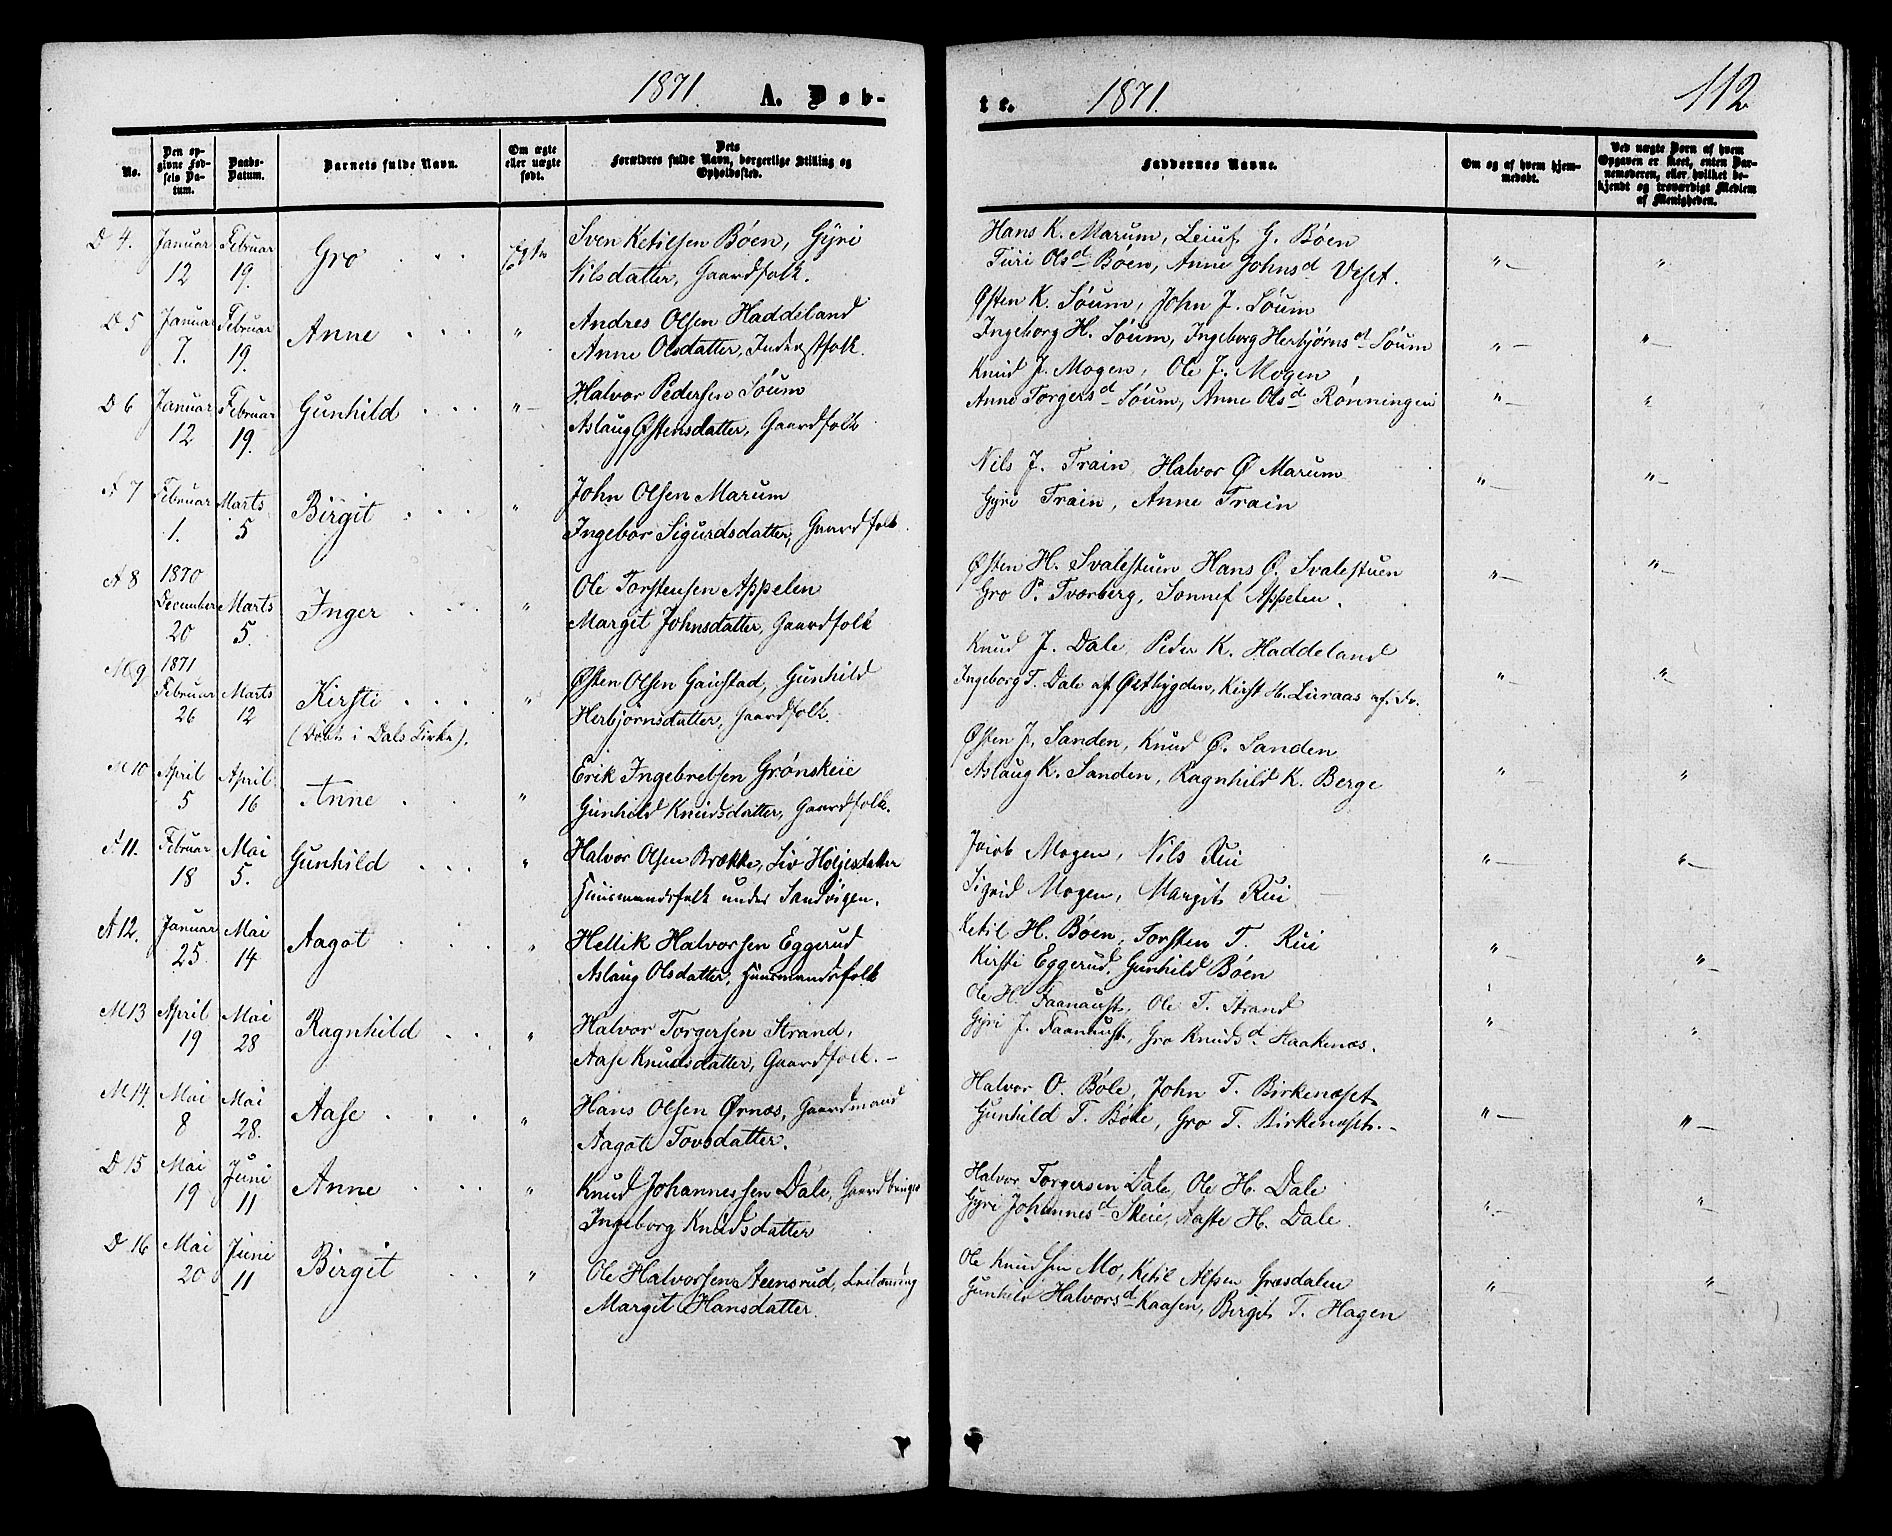 1871. A. Døb-
No.
Den opgivne Fødsels Datum.
Daabs-Datum.
Barnets fulde Navn.
Om ægte eller uægte født.
Dets Forældres fulde Navn, borgerlige Stilling og Opholdssted.
D 4. Januar 12 Februar 19. Gro Ægte Sven Ketilsen Bøen, Gyri
Nilsdatter, Gaardfolk.
D 5 Januar 7. Februar 19. Anne " Andres Olsen Haddeland
Anne Olsdatter, Inderstfolk.
D 6 Januar 12 Februar 19. Gunhild " Halvor Pedersen Søum
Aslaug Østensdatter, Gaardfolk
7 Februar 1. Marts 5 Birgit " John Olsen Marum
Ingebor Sigurdsdatter, Gaardfolk.
A 8 1870 December 20 Marts 5. Inger " Ole Torstensen Appelen
Margit Johnsdatter, Gaardfolk
M 9 1871 Februar 26 Marts 12 Kirsti " Østen Olsen Gaustad, Gunhild
(Døbt i Dals Kirke). Herbjørnsdatter, Gaardfolk.
M 10 April 5 April 16 Anne " Erik Ingebretsen Grønskeie
Gunhild Knudsdatter, Gaardfolk.
11. Februar 18 Mai 5. Gunhild " Halvor Olsen Brække, Liv Høljesdatter
Huusmandsfolk under Sandvigen.
A 12. Januar 25 Mai 14 Aagot " Hellik Halvorsen Eggerud
Aslaug Olsdatter, Huusmandsfolk
M 13 April 19 Mai 28 Ragnhild " Halvor Torgersen Strand,
Aase Knudsdatter, Gaardfolk. -
M 14. Mai 8 Mai 28. Aase " Hans Olsen Ørnæs, Gaardmand
Aagot Tovsdatter.
D 15 Mai 19 Juni 11 Anne " Knud Johannessen Dale, Gaardbruger
Ingeborg Knudsdatter
D 16 Mai 20 Juni 11 Birgit " Ole Halvorsen Steensrud,
Margit Hansdatter.
te. 1871. 112
Faddernes Navne.
Om og af hvem hjemmedøbt.
Ved uægte Born af hvem Opgaven er skeet, enten Barnemoderen, eller hvilket bekjendt og troværdigt Medlem af Menigheden.
Hans K. Marum, Leiuf G. Bøen
Turi Olsd Bøen, Anne Johnsd Vest. " "
Østen K. Søum, John J. Søum
Ingeborg H. Søum, Ingeborg Herbjørnsd Søum " "
Knud J. Mogen, Ole J. Mogen
Anne Torgersd Søum, Anne Olsd Rønningen " "
Nils J. Train, Halvor Ø Marum
Gyri Train, Anne Train " "
Østen H. Svalestuen Hans O. Svalestuen
Gro P. Tværberg, Sonnef Appelen. " "
Knud J. Dale, Peder K. Haddeland
Ingeborg T. Dale af Østbygden, Kirst H. Luraas af " "
Østen J. Sanden, Knud O. Sanden
Aslaug K. Sanden, Ragnhild K. Berge " "
Jacob Mogen, Nils Rui
Sigrid Mogen, Margit Rui " "
Ketil H. Bøen, Torsten T. Rui
Kirsti Eggerud, Gunhild Bøen " "
Ole H. Faanaust, Ole T. Strand
Gyri J. Faanaust, Gro Knudsd Haakenæs. " "
Halvor O. Bøle, John T. Birkenæset
Gunhild T. Bøle, Gro T. Birkenæset. - " "
Halvor Torgersen Dale, Ole H. Dale
Gyri Johannesd Skeie, Aaste H. Dale. " "
Ole Knudsen Mo, Ketil Alfsen Græsdalen
Gunhild Halvorsd Kaasen, Bergit T. Hagen " "